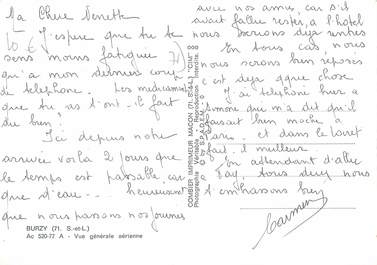 Ma Chère Venette
J'espère que tu te
sens moins fatiguée
qu'a mon dernier coup
de téléphone. Les médicaments
que tu as t'ont-il fait
du bien?
Ici depuis notre
arrivée voilà 2 jours que
le temps est passable, car
que d'eau... heureusement
que nous passons nos journées
BURZY (71. S.-et-L.)
Ac 520-77 A - Vue générale aérienne
COMBIER IMPRIMEUR MACON (71. S.-&-L.) "CIM"
Photographie Véritable - Reproduction interdite
by S.P.A.D.E.M.
avec nos amis, car s'il
avait fallu rester, à l'hotel
nous serions déjà rentrés
En tous cas, nous
nous serons bien reposés
c'est déjà qque chose
J'ai téléphoné hier à
Simone qui m'a dit qu'il
faisait bien moche à
Paris. et dans le Loiret
fait-il meilleur
En attendant d'aller
tous deux nous
t'embrassons bien
Carmen